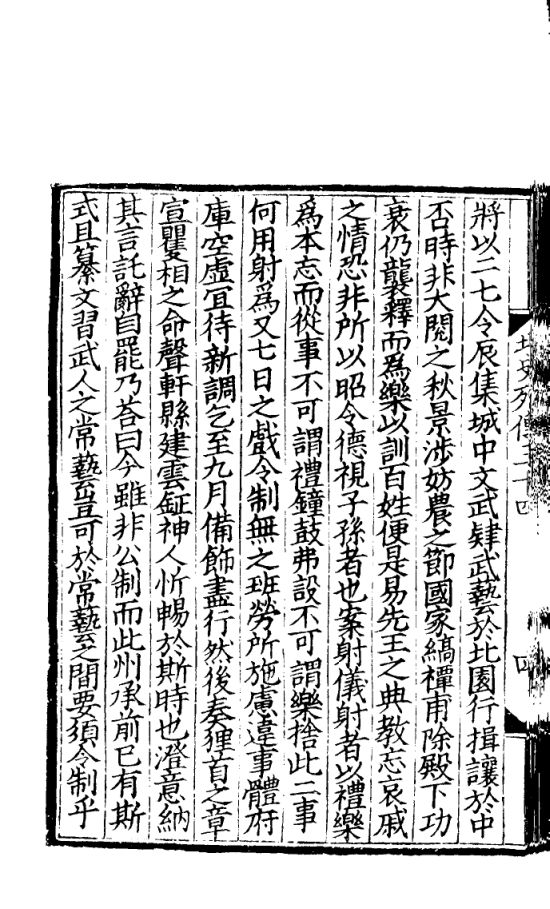 將以二七令辰集城中文武肄武藝於北園行揖讓於中
否時非大閱之秋景涉妨農之節國家縞禫甫除殿下功
衰仍襲釋而爲樂以訓百姓便是易先王之典教忘哀戚
之情恐非所以昭令德視子孫者也案射儀射者以禮樂
爲本忘而從事不可謂禮鐘鼓弗設不可謂樂捨此二事
何用射爲又七日之戲令制無之班勞所施慮違事體府
庫空虛宜待新調乞至九月備飾盡行然後奏貍首之章
宣矍相之命聲軒縣建雲鉦神人忻暢於斯時也澄意納
其言託辭自罷乃荅曰今雖非公制而此州承前已有斯
式且纂文習武人之常藝豈可於常藝之間要須令制乎